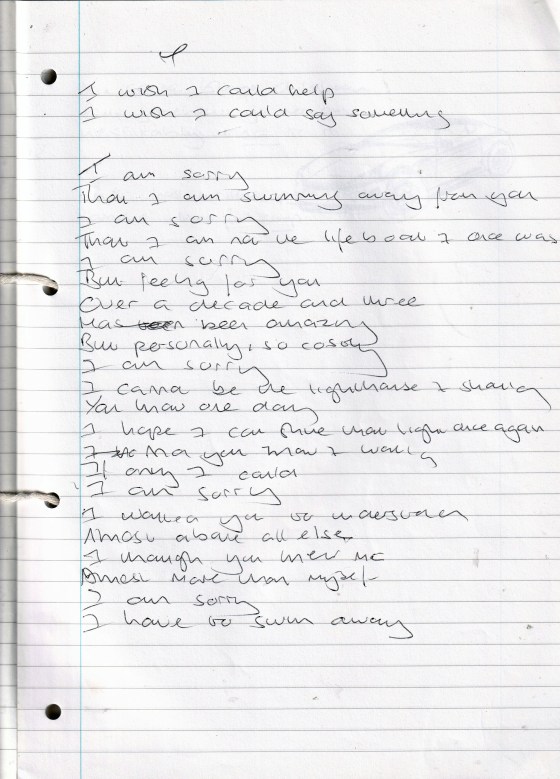 I wish I could help
I wish I could say something
I am sorry
That I am swimming away from you
I am sorry
That I am not the lifeboat I once was
I am sorry
But feeling for you
Over a decade and three
Has been been amazing
But personally, so costly
I am sorry
I cannot be the lighthouse
You know one day
I hope I can shine that light once again
you know I
If only I could
I am sorry
I wanted you to understand
Almost above all else
I thought you knew me
Almost more than myself
I am sorry
I have to swim away